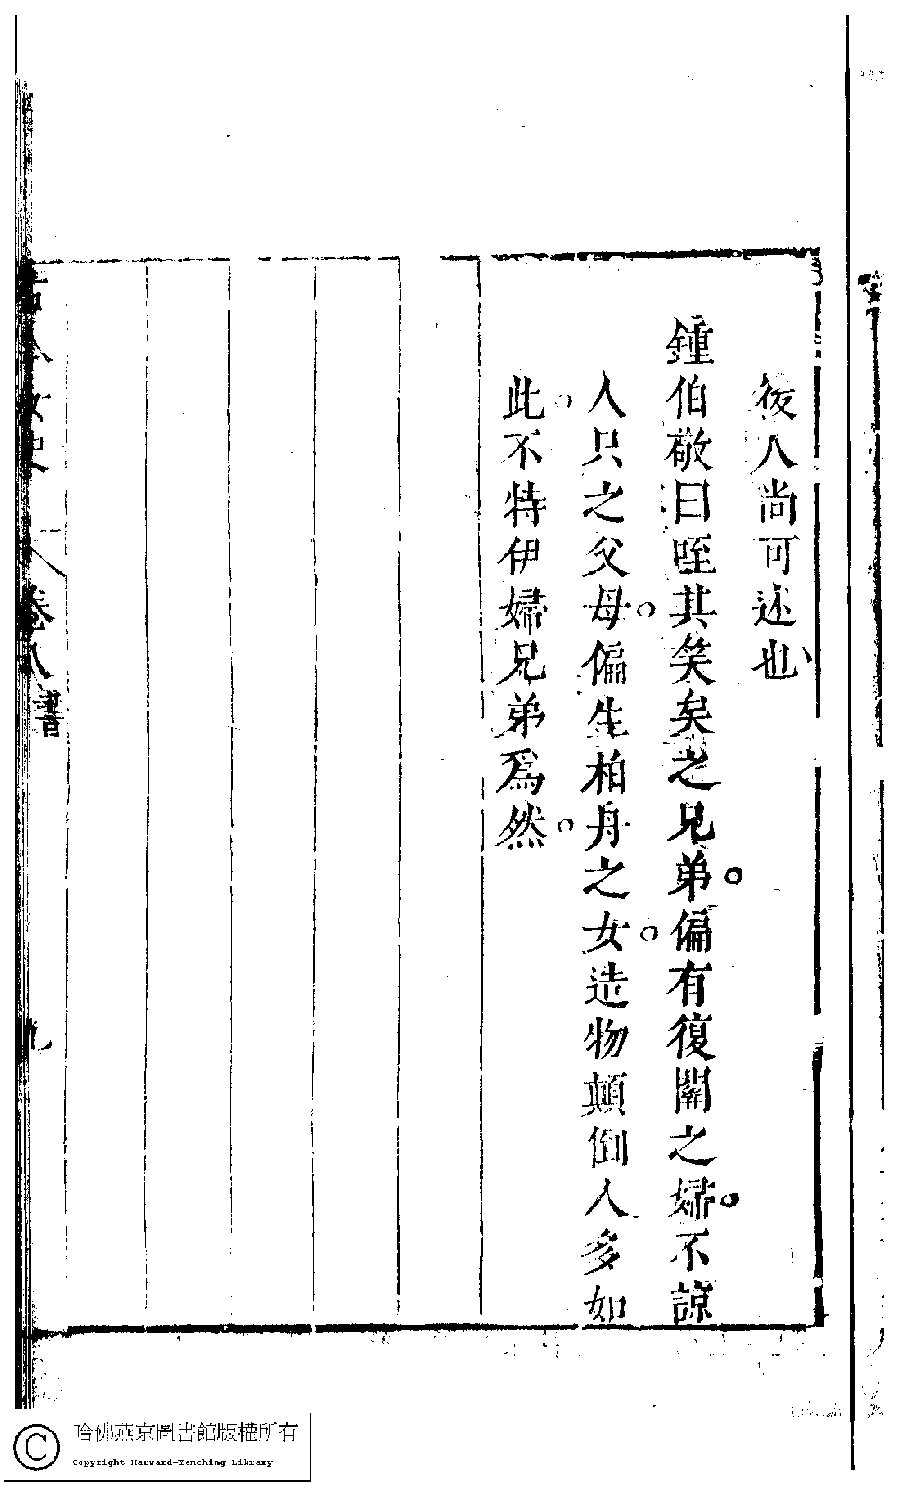 後人尚可述也
鍾伯敬曰咥其笑矣之兄弟偏有復關之婦不諒
人只之父母偏生柏舟之女造物顛倒人多如
此不特伊婦兄弟爲然
古今女史
卷八
書
九
哈佛燕京圖書館版權所有
Copyright Harvard-Yenching Library